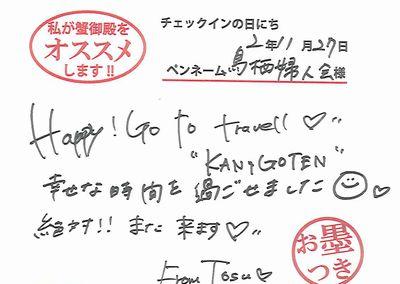 私が蟹御殿を
オススメ
します!!
チェックインの日にち
2年11月27日
ペンネーム 鳥栖婦人会様
Happy! Go to travell ♡"
"KANIGOTEN"
幸せな時間を過ごせました
絶対!! また来ます♡"
From Tosu♡
お墨つき